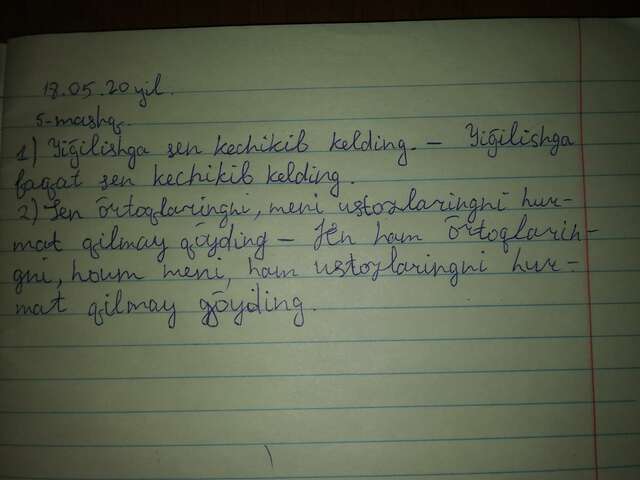 18.05.20 yil.
5-mashq.
1) Yiğilishga sen kechikib kelding. – Yiğilishga
faqat sen kechikib kelding.
2) Sen õrtoqlaringni, meni ustozlaringni hur-
mat qilmay qõyding – Sen ham õrtoqlarin-
gni, houm meni, ham ustozlaringni hur-
mat qilmay qõyding.